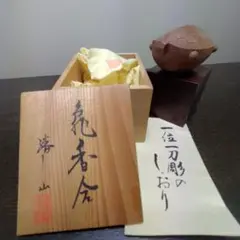 亀香合
勝山
一位一刀彫の
しおり